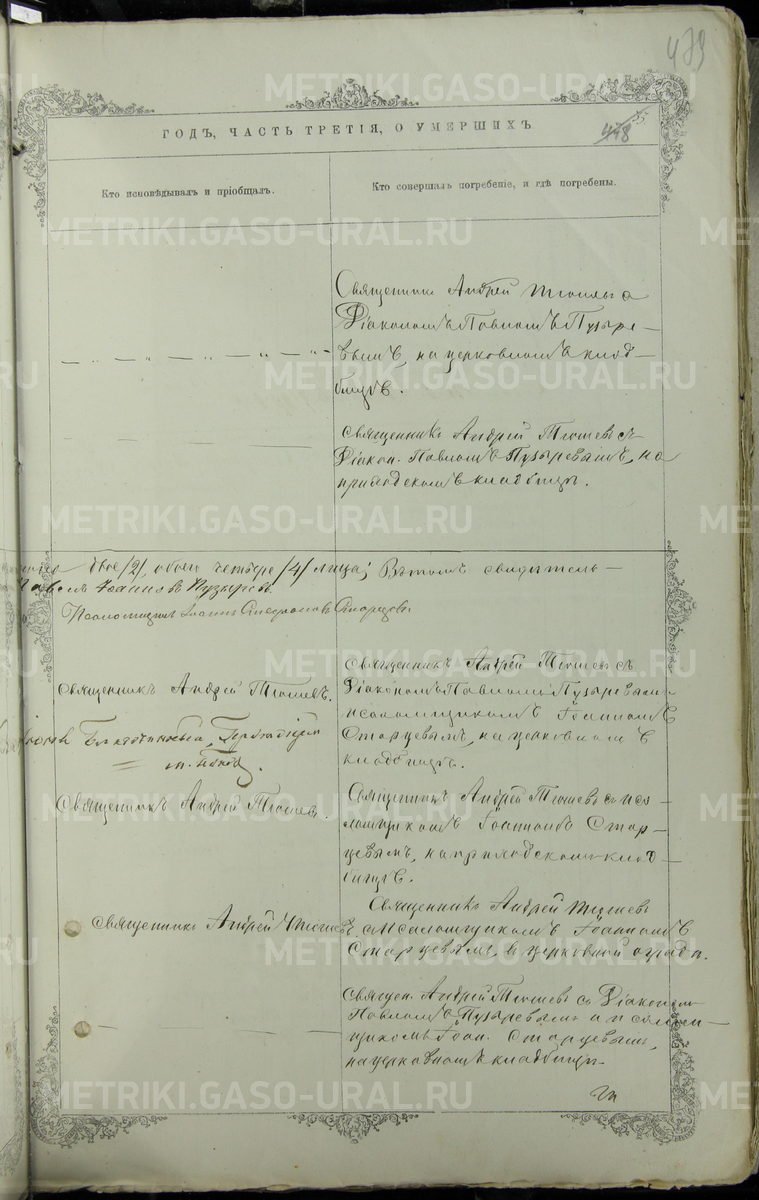 479
ГОДЪ, ЧАСТЬ ТРЕТІЯ, О УМЕРШИХЪ
478
Кто исповѣдывалъ и пріобщалъ.
Кто совершалъ погребеніе, и гдѣ погребены.
Священник Андрей Тюшевъ с
Діаконом Павломъ Пузыре-
вымъ, на церковномъ клад-
бищѣ.
Священникъ Андрей Тюшевъ съ
Діакон. Павломъ Пузыревымъ, на
приходскомъ кладбищѣ.
двое /2/, обоего четверо /4/ лица; Въ томъ свидѣтель-
Павелъ Іоанновъ Пузыревъ
Псаломщикъ Іоаннъ Стефановъ Старцевъ.
Священникъ Андрей Тюшевъ.
Священникъ Андрей Тюшевъ съ
Діакономъ Павломъ Пузыревымъ
и псаломщикомъ Іоанномъ
Старцевымъ, на церковномъ
кладбищѣ.
Благочинный
Священникъ Андрей Тюшевъ.
Священникъ Андрей Тюшевъ съ пса-
ломщикомъ Іоанномъ Стар-
цевымъ, на приходскомъ клад-
бищѣ.
Священникъ Андрей Тюшевъ
Священникъ Андрей Тюшевъ
съ псаломщикомъ Іоанномъ
Старцевымъ, въ церковной оградѣ.
Священ. Андрей Тюшевъ съ Діакономъ
Павломъ Пузыревымъ и псалом-
щикомъ Іоан. Старцевымъ,
на церковномъ кладбищѣ.
METRIKI.GASO-URAL.RU